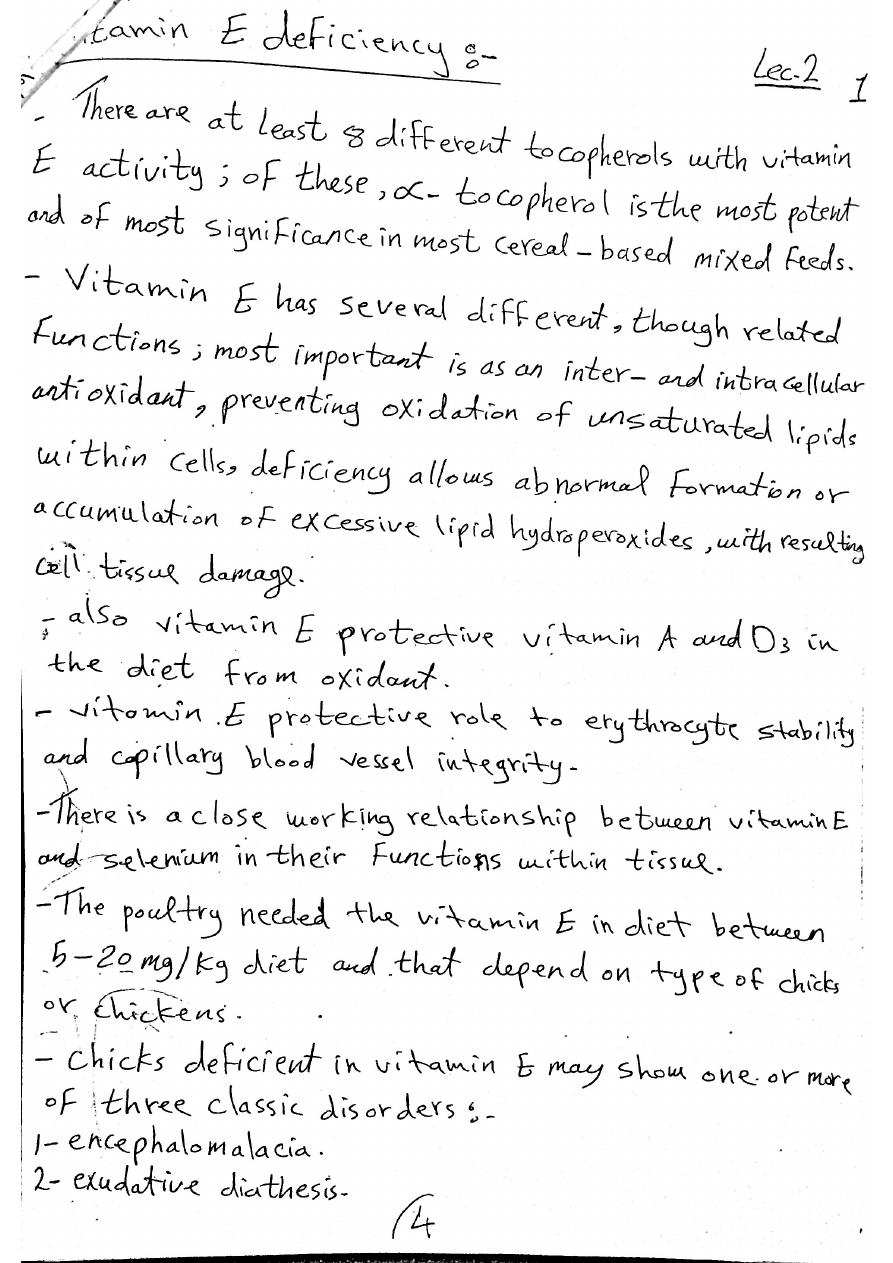 tamin E deficiency :-
Lec.2 1
- There are at least 8 different tocopherols with vitamin
E activity ; of these , α- tocopherol is the most potent
and of most significance in most cereal - based mixed feeds.
- Vitamin E has several different, though related
functions ; most important is as an inter- and intracellular
antioxidant, preventing oxidation of unsaturated lipids
within cells, deficiency allows abnormal formation or
accumulation of excessive lipid hydroperoxides , with resulting
cell tissue damage.
- also vitamin E protective vitamin A and D3 in
the diet from oxidant.
- vitamin E protective role to erythrocyte stability
and capillary blood vessel integrity.
- There is a close working relationship between vitamin E
and selenium in their functions within tissue.
- The poultry needed the vitamin E in diet between
5-20 mg/kg diet and that depend on type of chicks
or chickens.
- chicks deficient in vitamin E may show one or more
of three classic disorders :-
1- encephalomalacia.
2- exudative diathesis-
4